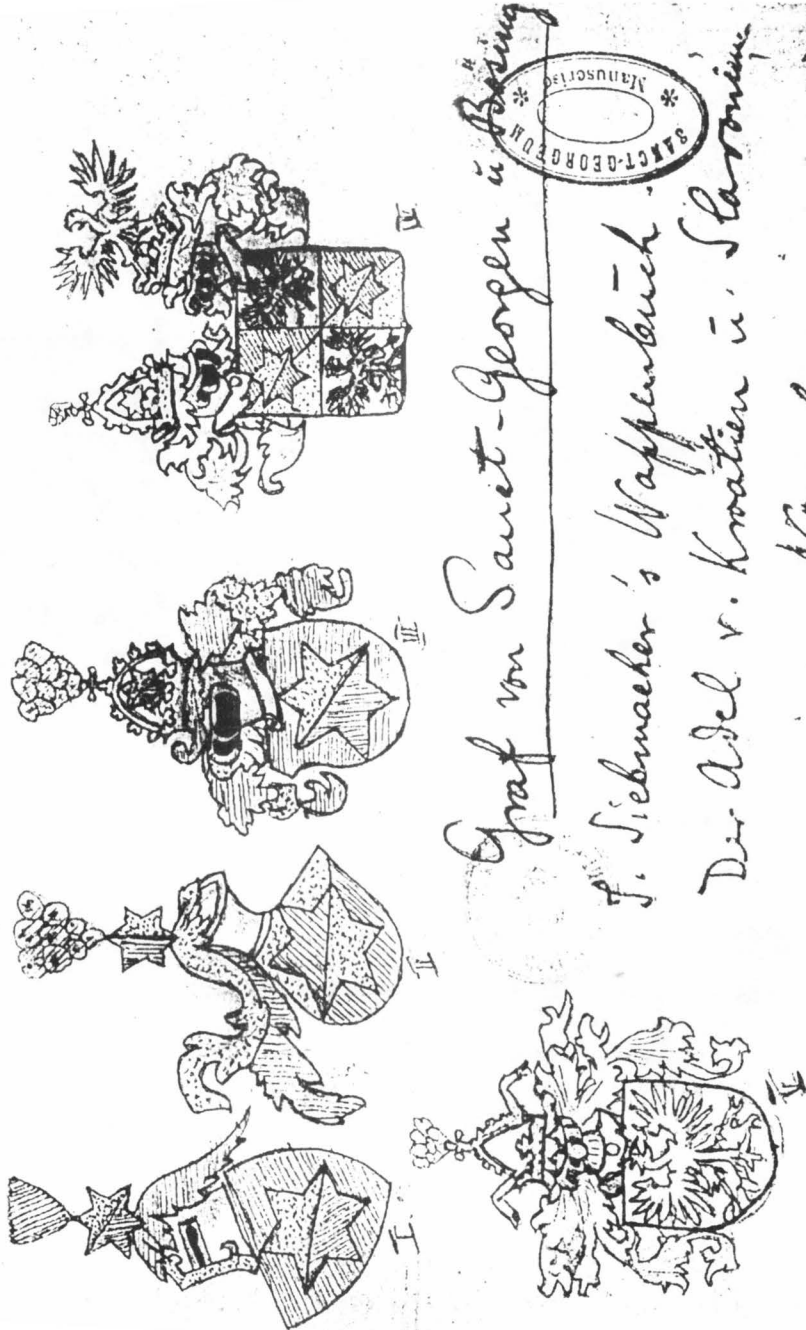 I
II
III
IV
V
Graf von Sanct-Georgen u Bösing
SANCT-GEORGEUM
Manuscrise
J. Siebmacher's Wappenbuch.
Der Adel v. Kroatien u. Slavonien